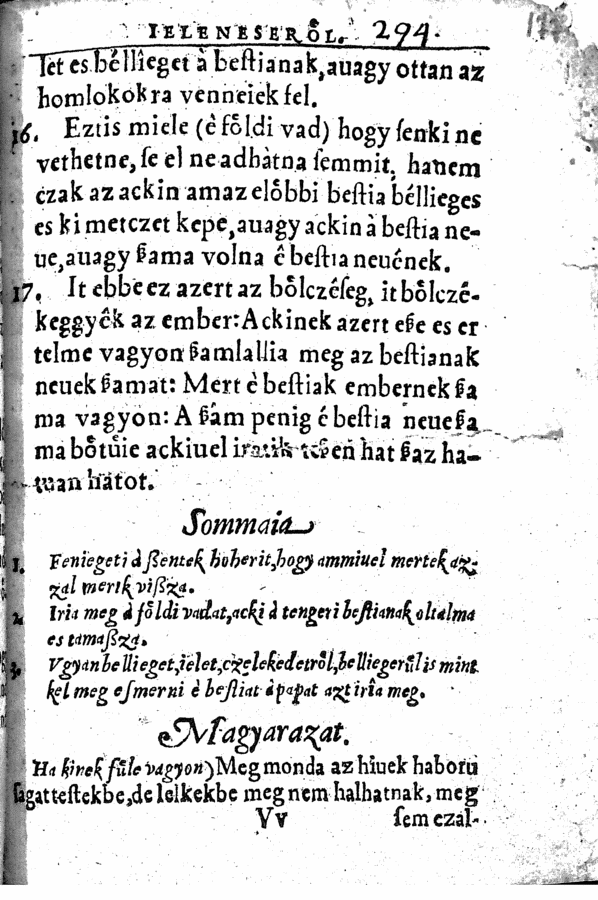 IELENESERO̊L. 294.
let es béllieget à beſtianak, auagy ottan az
homlokokra venneiek fel.
16. Eztis miele (è fo̊ldi vad) hogy ſenki ne
vethetne, ſe el ne adhàtna ſemmit, hanem
czak az ackin amaz elo̊bbi beſtia béllieges
es ki metczet kepe, auagy ackin à beſtia ne-
ue, auagy ßama volna ê beſtia neuének.
17. It ebbe ez azert az bo̊lczéſeg, it bo̊lczé-
keggyék az ember: Ackinek azert eße es er
telme vagyon ßamlallia meg az beſtianak
neuek ßamat: Mert è beſtiak embernek ßa
ma vagyon: A ßám penig é beſtia neue ßa
ma bo̊tüie ackiuel iratik hat ßaz ha-
tuan hatot.
Sommaia
1. Feniegeti à ßentek hoherit, hogy ammiuel mertek az-
zal merik vißza.
2. Iria meg à fo̊ldi vadat, acki à tengeri beſtianak oltalma
es tamaßza.
3. Vgyan bellieget, ielet, czelekedetro̊l, belliegerůl is mint
kel meg eſmerni è beſtiat à papat azt irîa meg.
Magyarazat.
Ha kinek fůle vagyon) Meg monda az hiuek haboru
ſagat teſtekbe, de lelkekbe meg nem halhatnak, meg
Vv ſem ezal-